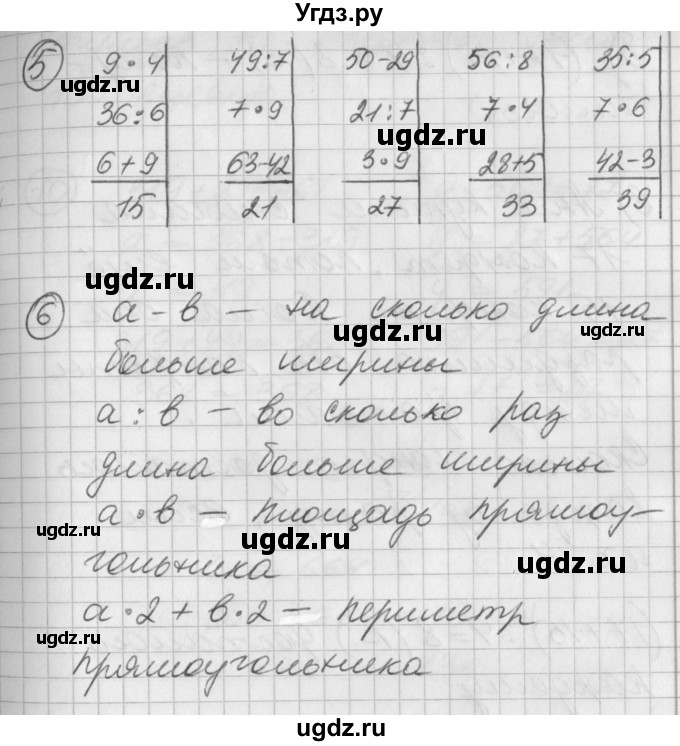 Угдз.ру
5 9·4 49:7 50-29 56:8 35:5
ugdz.ru ugdz.ru
36:6 7·9 21:7 7·4 7·6
ugdz.ru
6+9 63-42 3·9 28+5 42-3
15 21 27 33 39
ugdz.ru ugdz.ru
6 а-в — на сколько длина
ugdz.ru
больше ширины
а:в — во сколько раз
длина больше ширины
а·в — площадь прямоу-
ugdz.ru ugdz.ru ugdz.ru
гольника
а·2+в·2 — периметр
прямоугольника
ugdz.ru